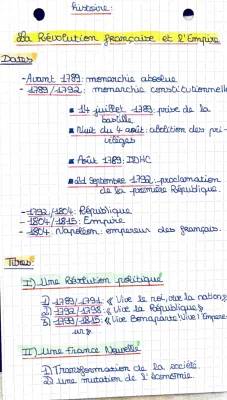 histoire:
La Révolution française et l'Empire
Dates
- Avant 1789: monarchie absolue
- 1789/1792: monarchie constitutionnelle
▪ 14 juillet 1789: prise de la
bastille
▪ Nuit du 4 août: abolition des pri-
vilèges
▪ Août 1789: DDHC
▪ 21 Septembre 1792: proclamation
de la première République.
- 1792/1804: République
- 1804/1815: Empire
- 1804 Napoléon: empereur des français.
Titres:
I) Une Révolution politique
1) 1789/1791: «Vive le roi, vive la nation»
2) 1792/1798: «Vive la République»
3) 1799/1815: «Vive Bonaparte! Vive l'Empere-
ur»
II) Une France Nouvelle
1) Transformation de la société
2) Une mutation de l'économie.